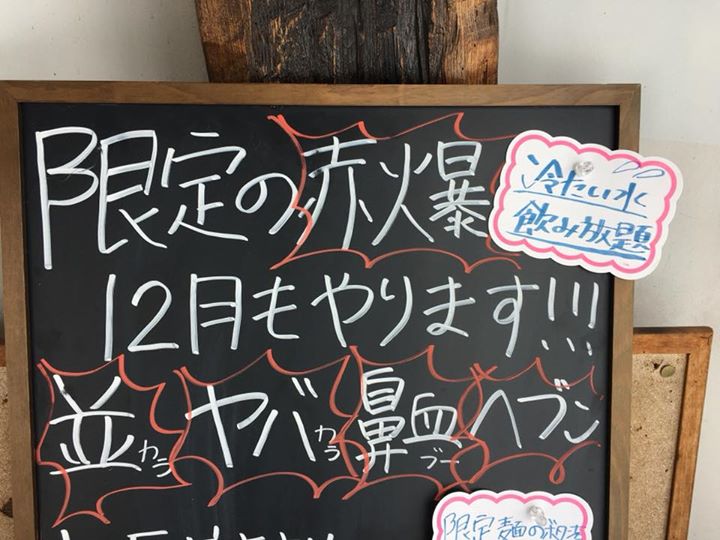 限定の赤爆
冷たい水
飲み放題
12月もやります!!!
並カラ ヤバカラ 鼻血ブー ヘブン
限定麺の